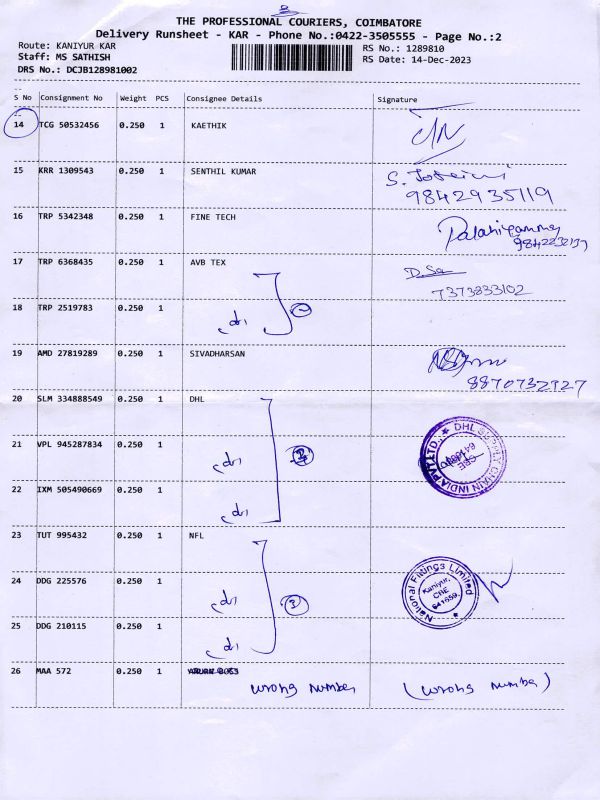 THE PROFESSIONAL COURIERS, COIMBATORE
Delivery Runsheet - KAR - Phone No.:0422-3505555 - Page No.:2
Route: KANIYUR KAR RS No.: 1289810
Staff: MS SATHISH RS Date: 14-Dec-2023
DRS No.: DCJB128981002
S No Consignment No Weight PCS Consignee Details Signature
14 TCG 50532456 0.250 1 KAETHIK
15 KRR 1309543 0.250 1 SENTHIL KUMAR S.
9842935119
16 TRP 5342348 0.250 1 FINE TECH Palaniyammy
9842232137
17 TRP 6368435 0.250 1 AVB TEX
7373833102
18 TRP 2519783 0.250 1
19 AMD 27819289 0.250 1 SIVADHARSAN
8870732727
20 SLM 334888549 0.250 1 DHL
21 VPL 945287834 0.250 1 DHL SUPPLY CHAIN INDIA PVT LTD.,
CBE
22 IXM 505490669 0.250 1
23 TUT 995432 0.250 1 NFL
24 DDG 225576 0.250 1 3 National Fittings Limited
Kaniyur,
CBE
641659.
25 DDG 210115 0.250 1
26 MAA 572 0.250 1
wrong number (wrong number)